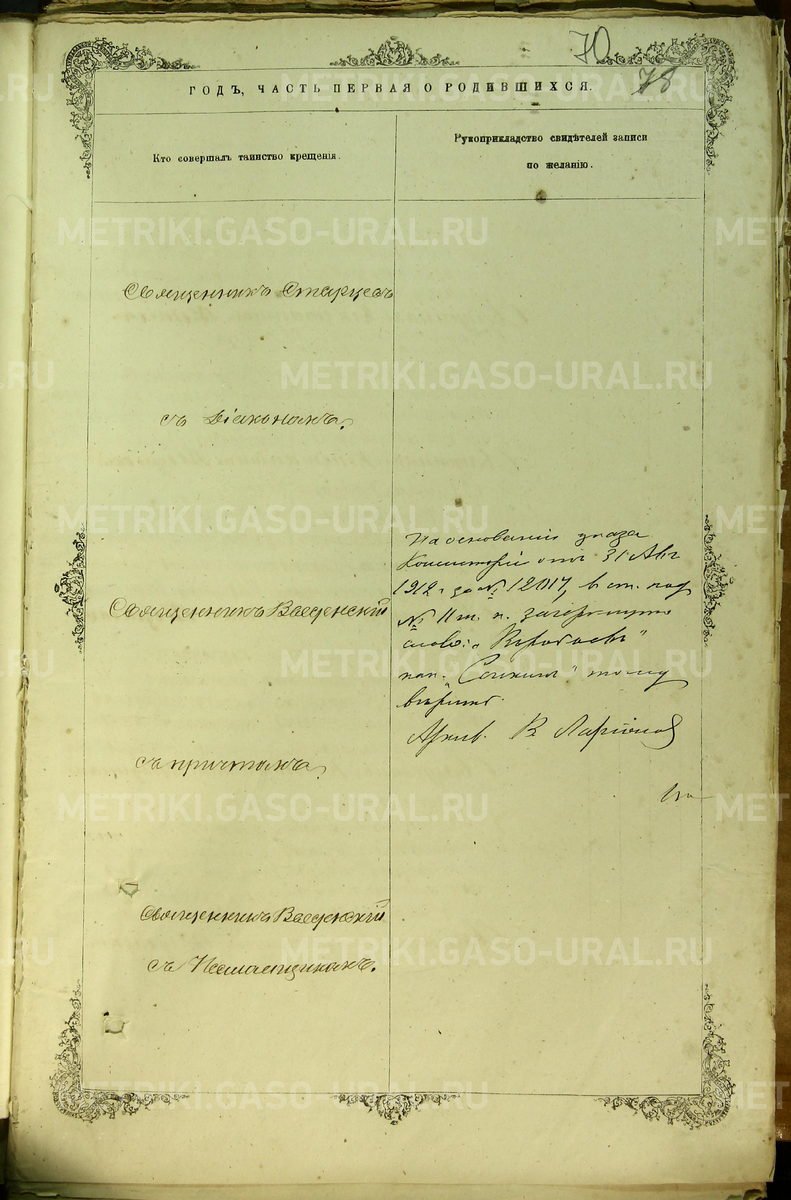 70
78
ГОДЪ, ЧАСТЬ ПЕРВАЯ О РОДИВШИХСЯ.
Кто совершалъ таинство крещенія.
Рукоприкладство свидѣтелей записи
по желанію.
Священникъ Старцевъ
съ Діакономъ.
Священникъ Введенскій
съ причтомъ,
Священникъ Введенскій
съ Псаломщикомъ.
На основаніи указа
Консисторіи отъ 31 Авг
1912 г за № 12017, в ст. под
№ 11 м. п. зачеркнуто
слово:
нап. " тому
вѣрить.
Архив. В Ларіонов
METRIKI.GASO-URAL.RU